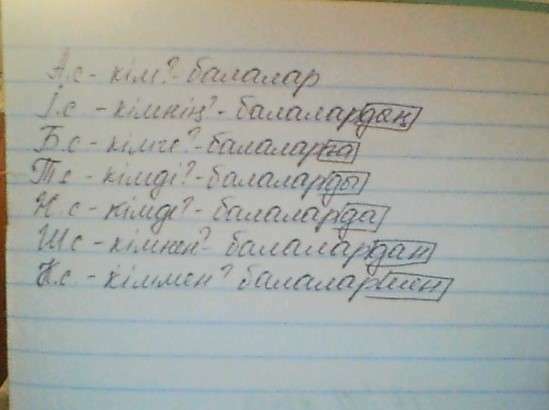 А.с - кім? - балалар
І.с - кімнің? - балалардың
Б.с - кімге? - балаларға
Т.с - кімді? - балаларды
Ж.с - кімде? - балаларда
Ш.с - кімнен? - балалардан
К.с - кіммен? балалармен